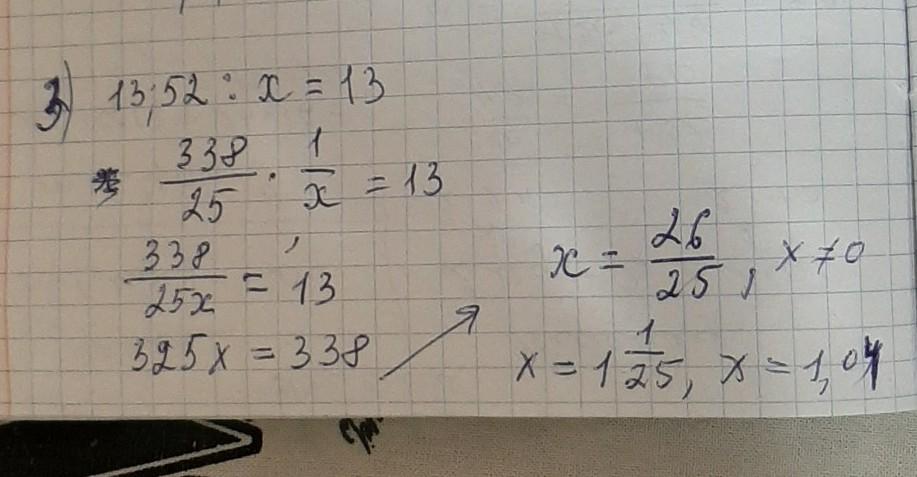 3) 13,52 : x = 13
338/25 · 1/x = 13
338/25x = 13
325x = 338
x = 26/25, x ≠ 0
x = 1 1/25, x = 1,04